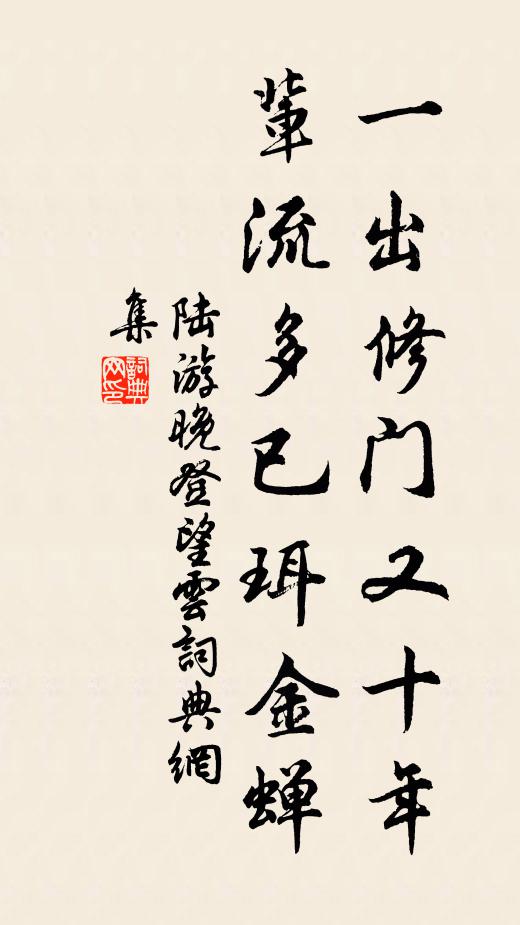 一出修门又十年
輩流多已珥金蝉
陆游晚登望雲詞典網
集
詞典
网印